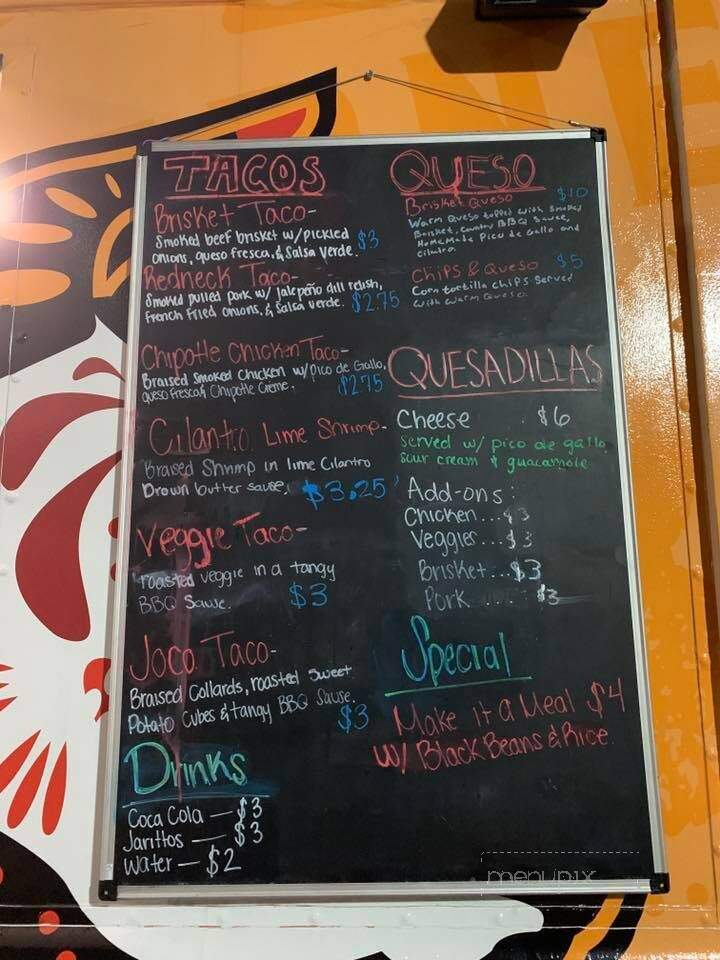 TACOS
Brisket Taco-
Smoked beef brisket w/pickled
onions, queso fresca, & Salsa Verde. $3
Redneck Taco-
Smoked pulled pork w/ jalepeño dill relish,
french fried onions, & Salsa verde. $2.75
Chipotle Chicken Taco-
Braised Smoked Chicken w/pico de Gallo,
queso fresca, & Chipotle Creme. $2.75
Cilantro Lime Shrimp-
Braised Shrimp in lime Cilantro
brown butter sause. $3.25
Veggie Taco-
roasted veggie in a tangy
BBQ Sause. $3
Joco Taco-
Braised Collards, roasted Sweet
Potato Cubes & tangy BBQ Sause. $3
Drinks
Coca Cola — $3
Jarittos — $3
Water — $2
QUESO
Brisket Queso $10
Warm Queso topped with Smoked
Brisket, Country BBQ Sauce,
HomeMade Pico de Gallo and
cilantro
Chips & Queso $5
Corn tortilla chips Served
with warm Queso
QUESADILLAS
Cheese $6
Served w/ pico de gallo
Sour cream & guacamole
Add-ons:
Chicken...$3
Veggies...$3
Brisket...$3
Pork....$3
Special
Make it a Meal $4
w/ Black Beans & Rice.
menupix